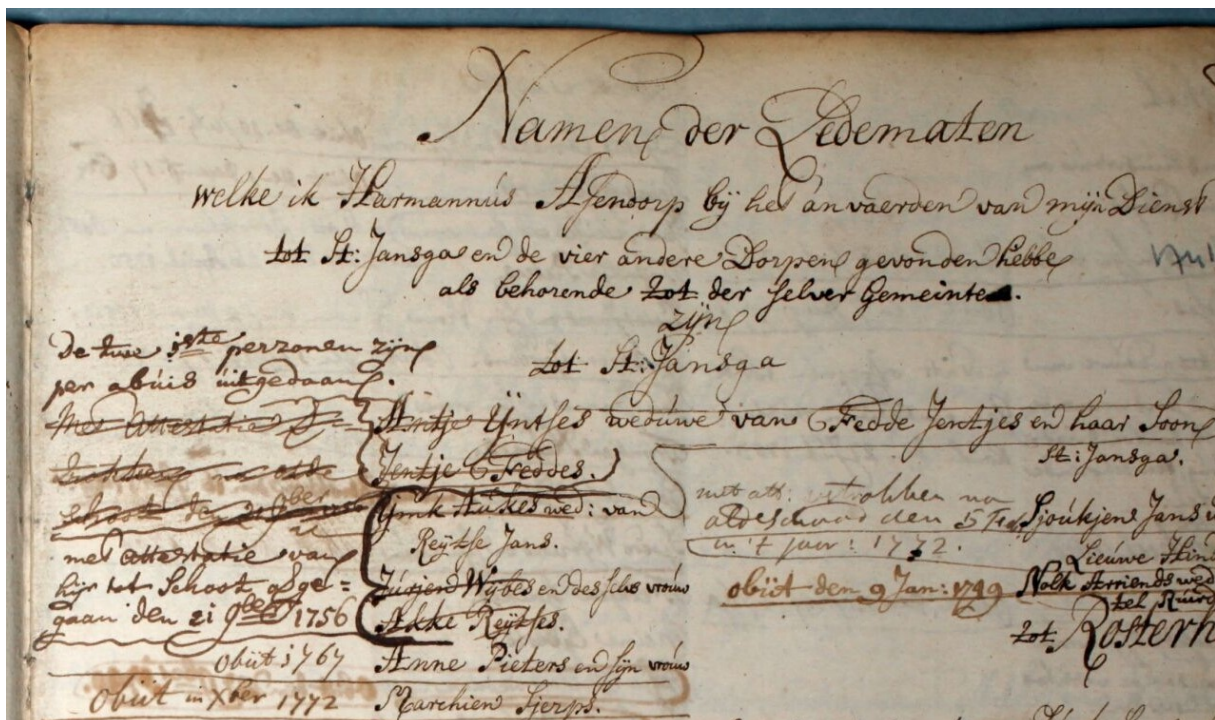 Namen der Ledematen
welke ik Harmannus Asendorp bij het anvaerden van mijn Dienst
tot St: Jansga en de vier andere Dorpen gevonden hebbe
als behorende tot der selver Gemeinte.
zijn
tot St: Jansga
De twe iste perzonen zijn
per abuis uitgedaan.
Met Attestatie
na olde
schoot de
met attestatie van
hijr tot Schoot afge=
gaan den 21 9ber 1756
obiit 1767
obiit in Xber 1772
Antje Yntses weduwe van Fedde Jentjes en haar Soon
Jentje Feddes.
Ymk Aukes wed: van
Reijtse Jans.
Jurjen Wijbes en des selvs vrouw
Akke Reijtses.
Anne Pieters en sijn vrouw
Marchien Sjerps.
St: Jansga.
met att: vertrokken na
oldeschoot den 5
in 't jaar: 1772.
obiit den 9 Jan: 1749
Sjoukjen Jans
Lieuwe
Nolk Arriends wed
tot